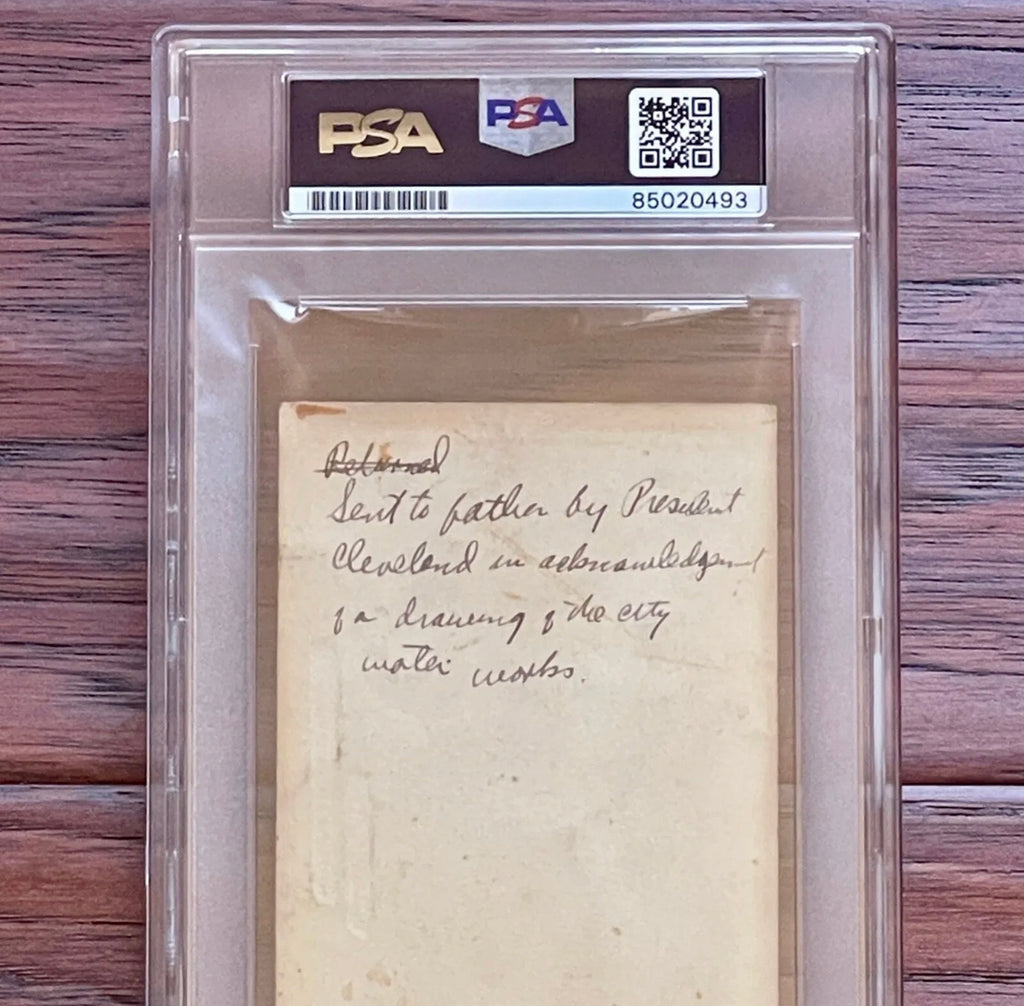 PSA PSA
85020493
Returned
Sent to father by President
Cleveland in acknowledgment
of a drawing of the city
water works.